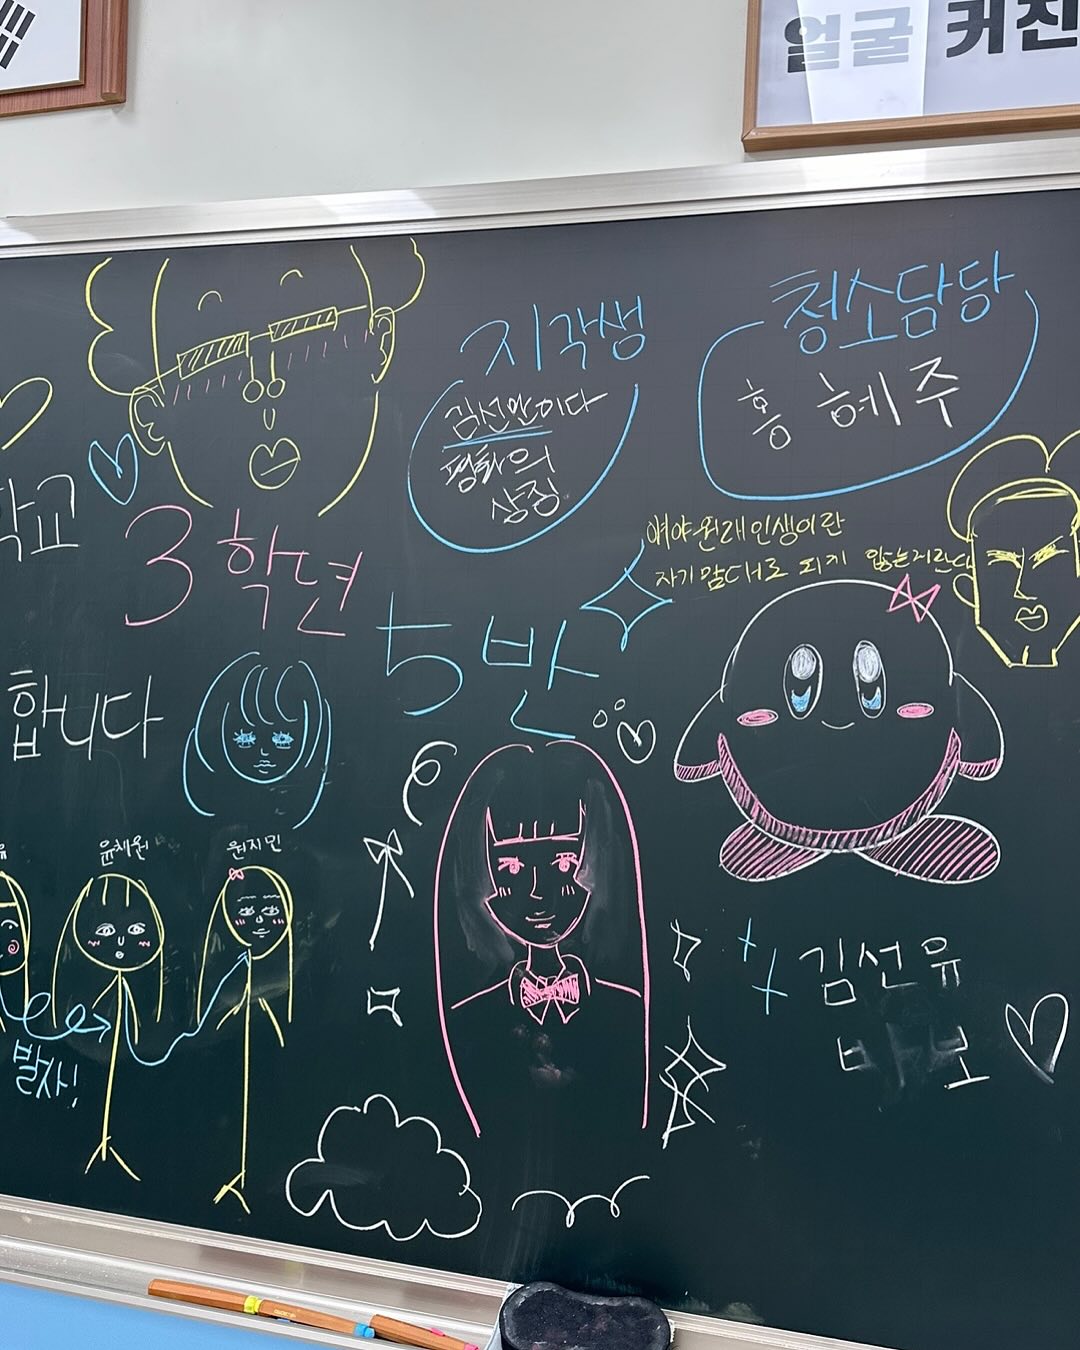 얼굴 커진
지각생
김선안이다
평화의
상징
청소담당
홍혜주
학교
3학년
5반
합니다
얘야 원래 인생이란
자기 맘대로 되지 않는거란다
윤채원
원지민
발사!
김선유
바보